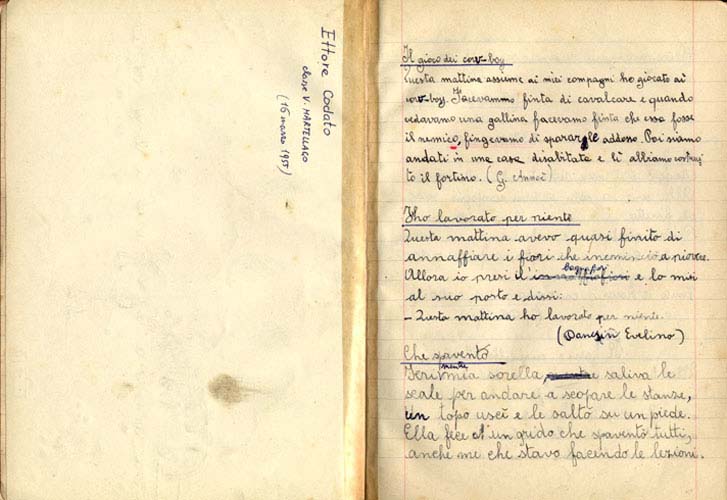 Ettore Codato
classe V. MARTELLAGO
(16 marzo 1955)
Il gioco dei cow-boy
Questa mattina assieme ai miei compagni ho giocato ai
cow-boy. Facevamo finta di cavalcare e quando
vedavamo una gallina facevamo finta che essa fosse
il nemico, fingevamo di spararle addosso. Poi siamo
andati in una casa disabitata e lì abbiamo costrui
to il fortino. (G.
Ho lavorato per niente
Questa mattina avevo quasi finito di
annaffiare i fiori che incominciò a piovere.
Allora io presi l' e lo misi
al suo posto e dissi:
- Questa mattina ho lavorato per niente.
(Danesin Evelino)
Che spavento
Ieri mentre mia sorella, saliva le
scale per andare a scopare le stanze,
un topo uscì e le saltò su un piede.
Ella fece un grido che spaventò tutti,
anche me che stavo facendo le lezioni.